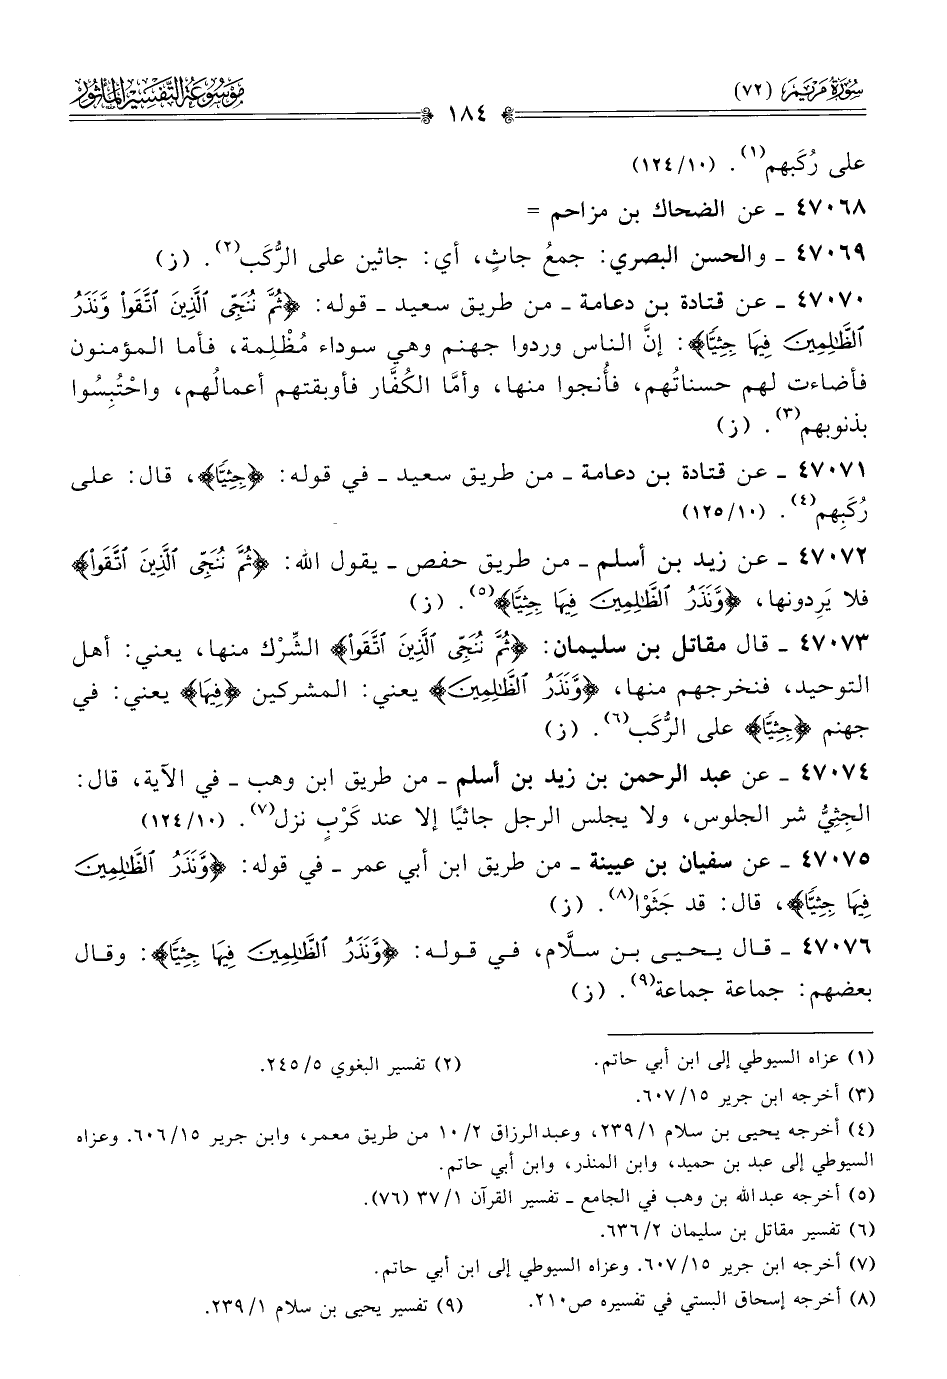 سُورَةُ مَرْيَمَ (٧٢)
١٨٤
مَوْسُوعَةُ التَّفْسِيرِ الْمَأْثُورِ
على رُكَبهم(١). (١٢٤/١٠)
٤٧٠٦٨ ـ عن الضحاك بن مزاحم =
٤٧٠٦٩ ـ والحسن البصري: جمعُ جاثٍ، أي: جاثين على الرُّكَب(٢). (ز)
٤٧٠٧٠ ـ عن قتادة بن دعامة ـ من طريق سعيد ـ قوله: ﴿ثُمَّ نُنَجِّى ٱلَّذِينَ ٱتَّقَوا۟ وَّنَذَرُ
ٱلظَّٰلِمِينَ فِيهَا جِثِيًّا﴾: إنَّ الناس وردوا جهنم وهي سوداء مُظْلِمة، فأما المؤمنون
فأضاءت لهم حسناتُهم، فأُنجوا منها، وأمَّا الكُفَّار فأوبقتهم أعمالُهم، واحْتُبِسُوا
بذنوبهم(٣). (ز)
٤٧٠٧١ ـ عن قتادة بن دعامة ـ من طريق سعيد ـ في قوله: ﴿جِثِيًّا﴾، قال: على
رُكَبِهم(٤). (١٢٥/١٠)
٤٧٠٧٢ ـ عن زيد بن أسلم ـ من طريق حفص ـ يقول الله: ﴿ثُمَّ نُنَجِّى ٱلَّذِينَ ٱتَّقَوا۟﴾
فلا يَرِدونها، ﴿وَّنَذَرُ ٱلظَّٰلِمِينَ فِيهَا جِثِيًّا﴾(٥). (ز)
٤٧٠٧٣ ـ قال مقاتل بن سليمان: ﴿ثُمَّ نُنَجِّى ٱلَّذِينَ ٱتَّقَوا۟﴾ الشِّرْك منها، يعني: أهل
التوحيد، فنخرجهم منها، ﴿وَّنَذَرُ ٱلظَّٰلِمِينَ﴾ يعني: المشركين ﴿فِيهَا﴾ يعني: في
جهنم ﴿جِثِيًّا﴾ على الرُّكَب(٦). (ز)
٤٧٠٧٤ ـ عن عبد الرحمن بن زيد بن أسلم ـ من طريق ابن وهب ـ في الآية، قال:
الجِثِيُّ شر الجلوس، ولا يجلس الرجل جاثيًا إلا عند كَرْبٍ نزل(٧). (١٢٤/١٠)
٤٧٠٧٥ ـ عن سفيان بن عيينة ـ من طريق ابن أبي عمر ـ في قوله: ﴿وَّنَذَرُ ٱلظَّٰلِمِينَ
فِيهَا جِثِيًّا﴾، قال: قد جَثَوْا(٨). (ز)
٤٧٠٧٦ ـ قال يحيى بن سلَّام، في قوله: ﴿وَّنَذَرُ ٱلظَّٰلِمِينَ فِيهَا جِثِيًّا﴾: وقال
بعضهم: جماعة جماعة(٩). (ز)
(١) عزاه السيوطي إلى ابن أبي حاتم.
(٢) تفسير البغوي ٥/ ٢٤٥.
(٣) أخرجه ابن جرير ١٥/ ٦٠٧.
(٤) أخرجه يحيى بن سلام ١/ ٢٣٩، وعبدالرزاق ٢/ ١٠ من طريق معمر، وابن جرير ١٥/ ٦٠٦. وعزاه
السيوطي إلى عبد بن حميد، وابن المنذر، وابن أبي حاتم.
(٥) أخرجه عبدالله بن وهب في الجامع ـ تفسير القرآن ١/ ٣٧ (٧٦).
(٦) تفسير مقاتل بن سليمان ٢/ ٦٣٦.
(٧) أخرجه ابن جرير ١٥/ ٦٠٧. وعزاه السيوطي إلى ابن أبي حاتم.
(٨) أخرجه إسحاق البستي في تفسيره ص٢١٠.
(٩) تفسير يحيى بن سلام ١/ ٢٣٩.